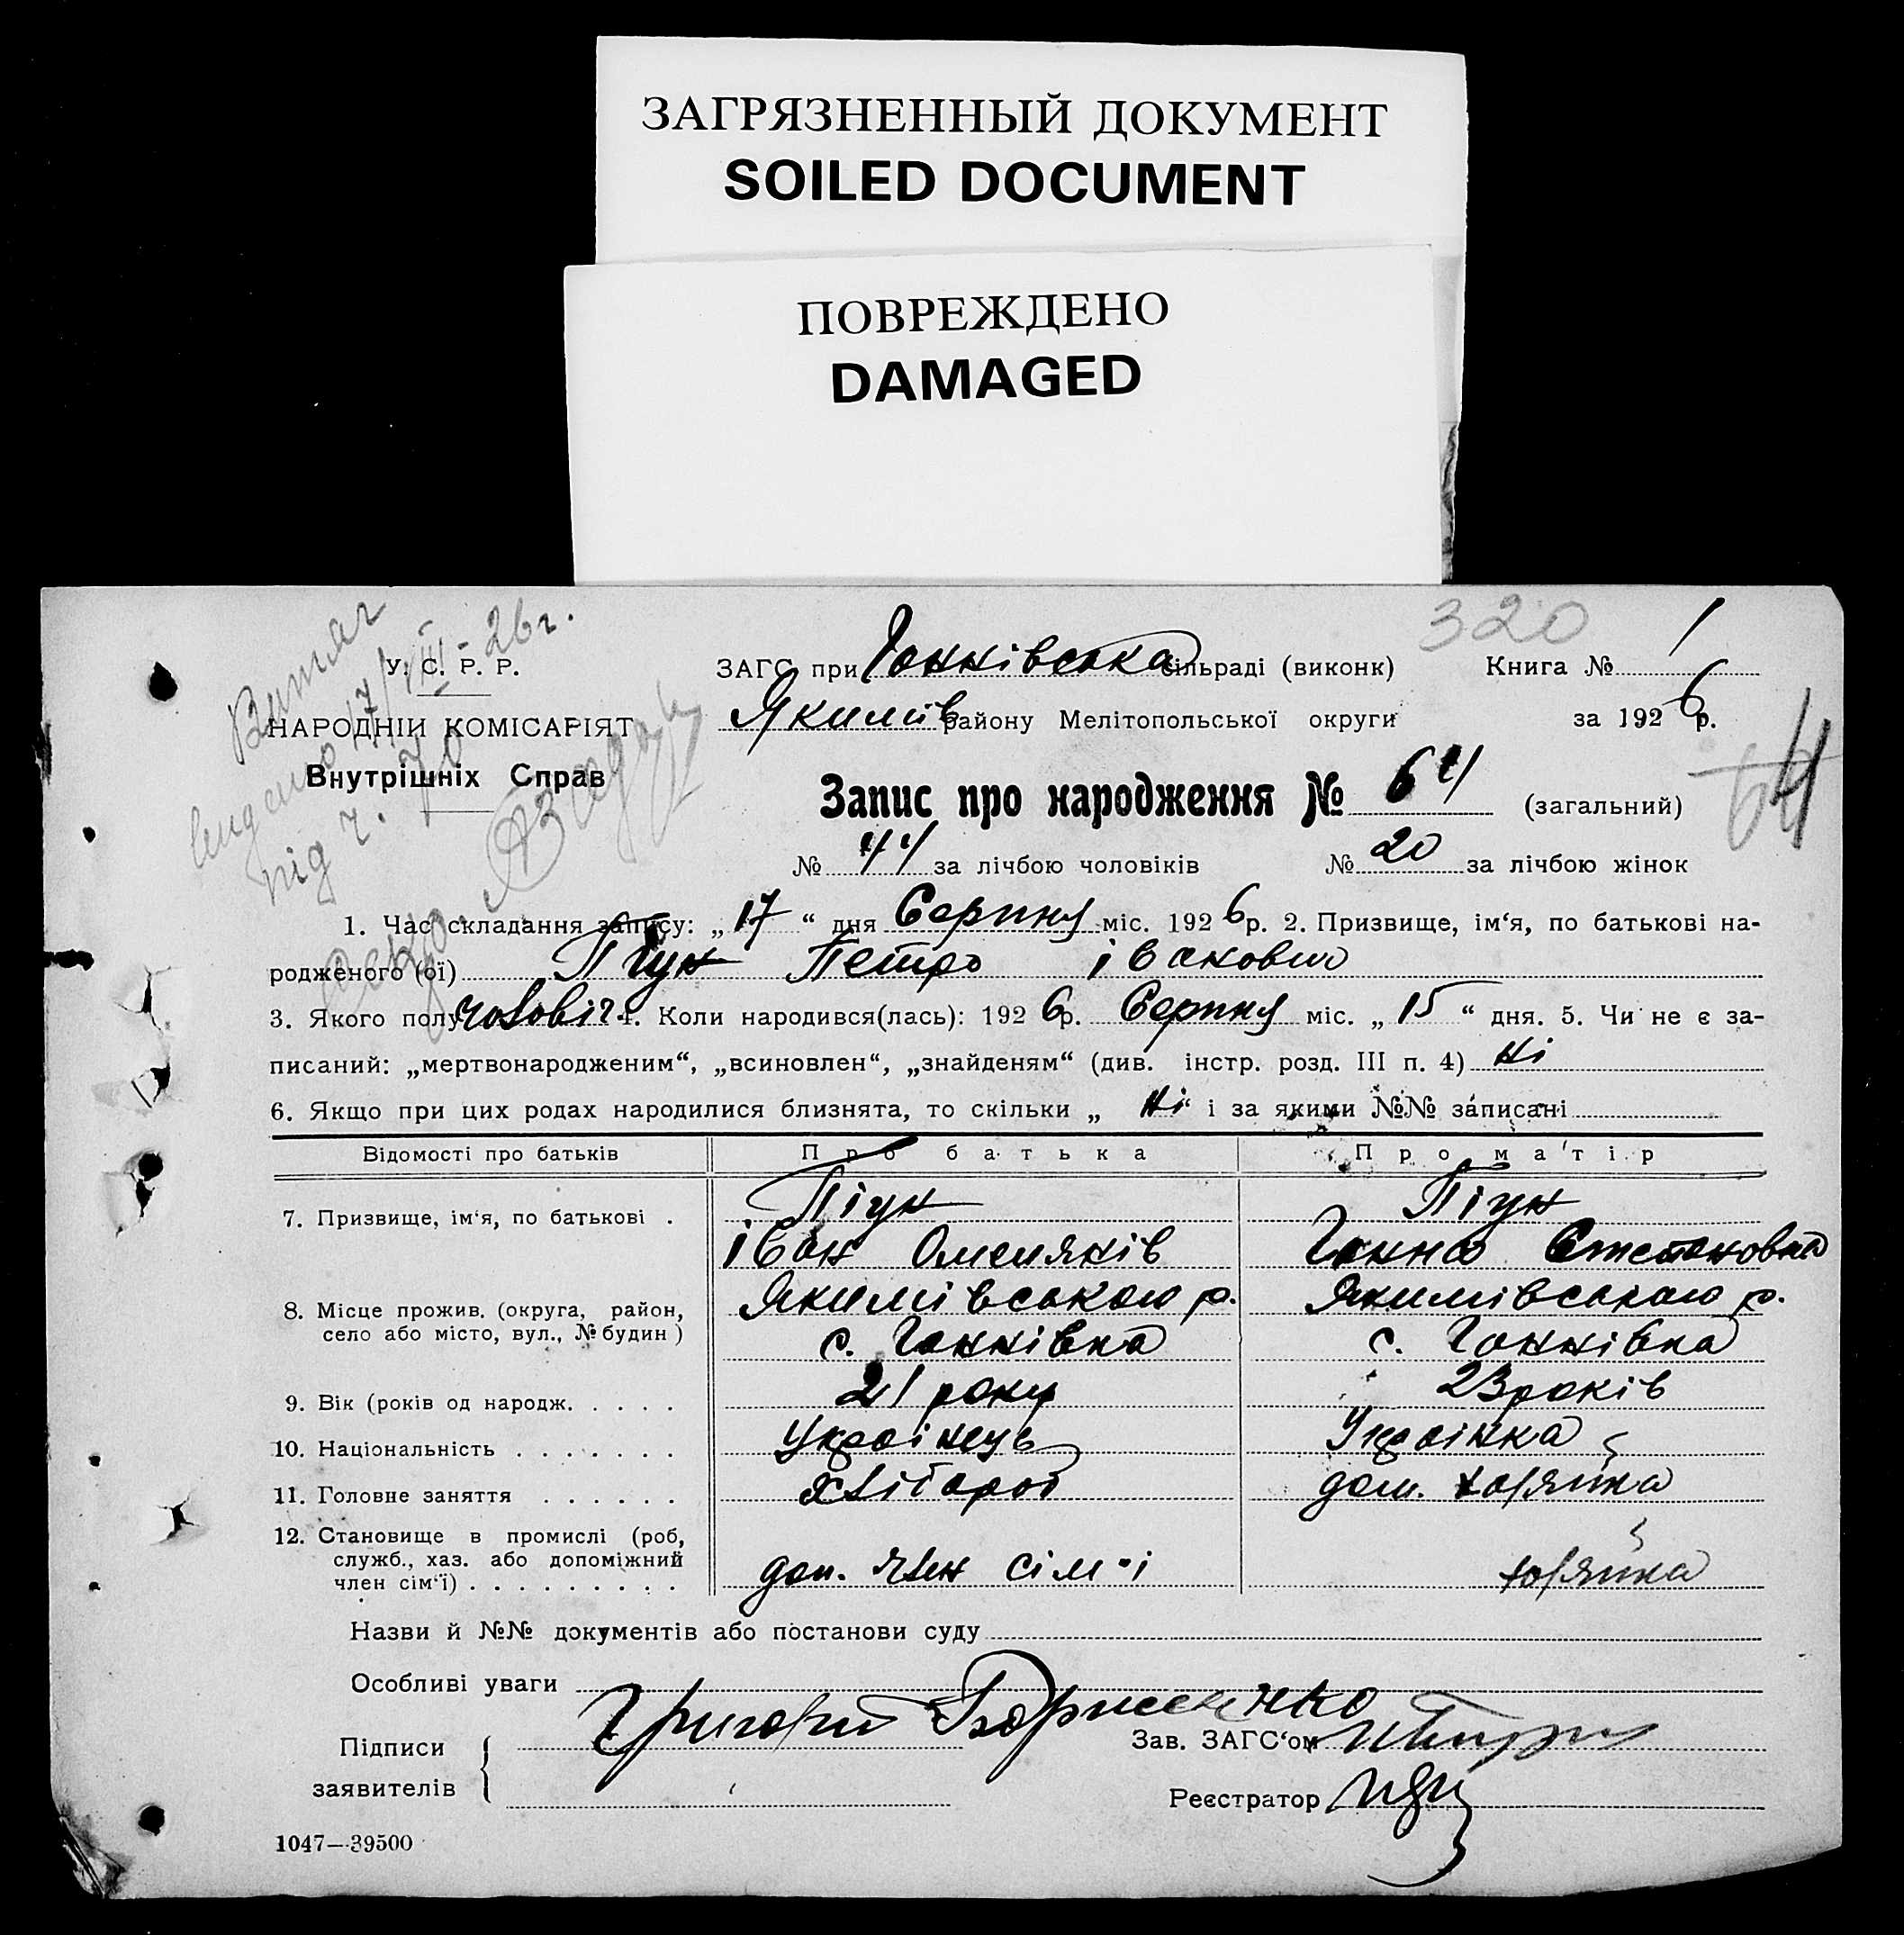 ЗАГРЯЗНЕННЫЙ ДОКУМЕНТ
SOILED DOCUMENT
ПОВРЕЖДЕНО
DAMAGED
320
Витяг
видано 17/VIII-26 г.
під ч. 70
У. С. Р. Р.
НАРОДНІЙ КОМІСАРІЯТ
Внутрішніх Справ
ЗАГС при Ганнівська сільраді (виконк) Книга № 1
Якимів району Мелітопольської округи за 1926 р.
Запис про народження № 64 (загальний)
64
№ 44 за лічбою чоловіків № 20 за лічбою жінок
1. Час складання запису: „17“ дня Серпня міс. 1926 р. 2. Призвище, ім‘я, по батькові на-
родженого (ої) Пігун Петро іванович
3. Якого полу чоловіч. 4. Коли народився(лась): 1926 р. Серпня міс. „15“ дня. 5. Чи не є за-
писаний: „мертвонародженим“, „всиновлен“, „знайденям“ (див. інстр. розд. III п. 4) Ні
6. Якщо при цих родах народилися близнята, то скільки „Ні“ і за якими №№ записані
Відомості про батьків Про батька Про матір
7. Призвище, ім‘я, по батькові . Пігун Пігун
іван Ганна Степановна
8. Місце прожив. (округа, район, Якимівського р. Якимівського р.
село або місто, вул., № будин) с. Ганнівка с. Ганнівка
9. Вік (років од народж. . . . . 21 року 23 років
10. Національність . . . . . . . Українець Українка
11. Головне заняття . . . . . . хлібороб дом. хозяйка
12. Становище в промислі (роб,
служб., хаз. або допоміжний
член сім‘ї) . . . . . . . . . доп. член сім'і хозяйка
Назви й №№ документів або постанови суду
Особливі уваги
Підписи
заявителів
Григорій Борисенко
Зав. ЗАГС‘ом
Реєстратор
1047—39500